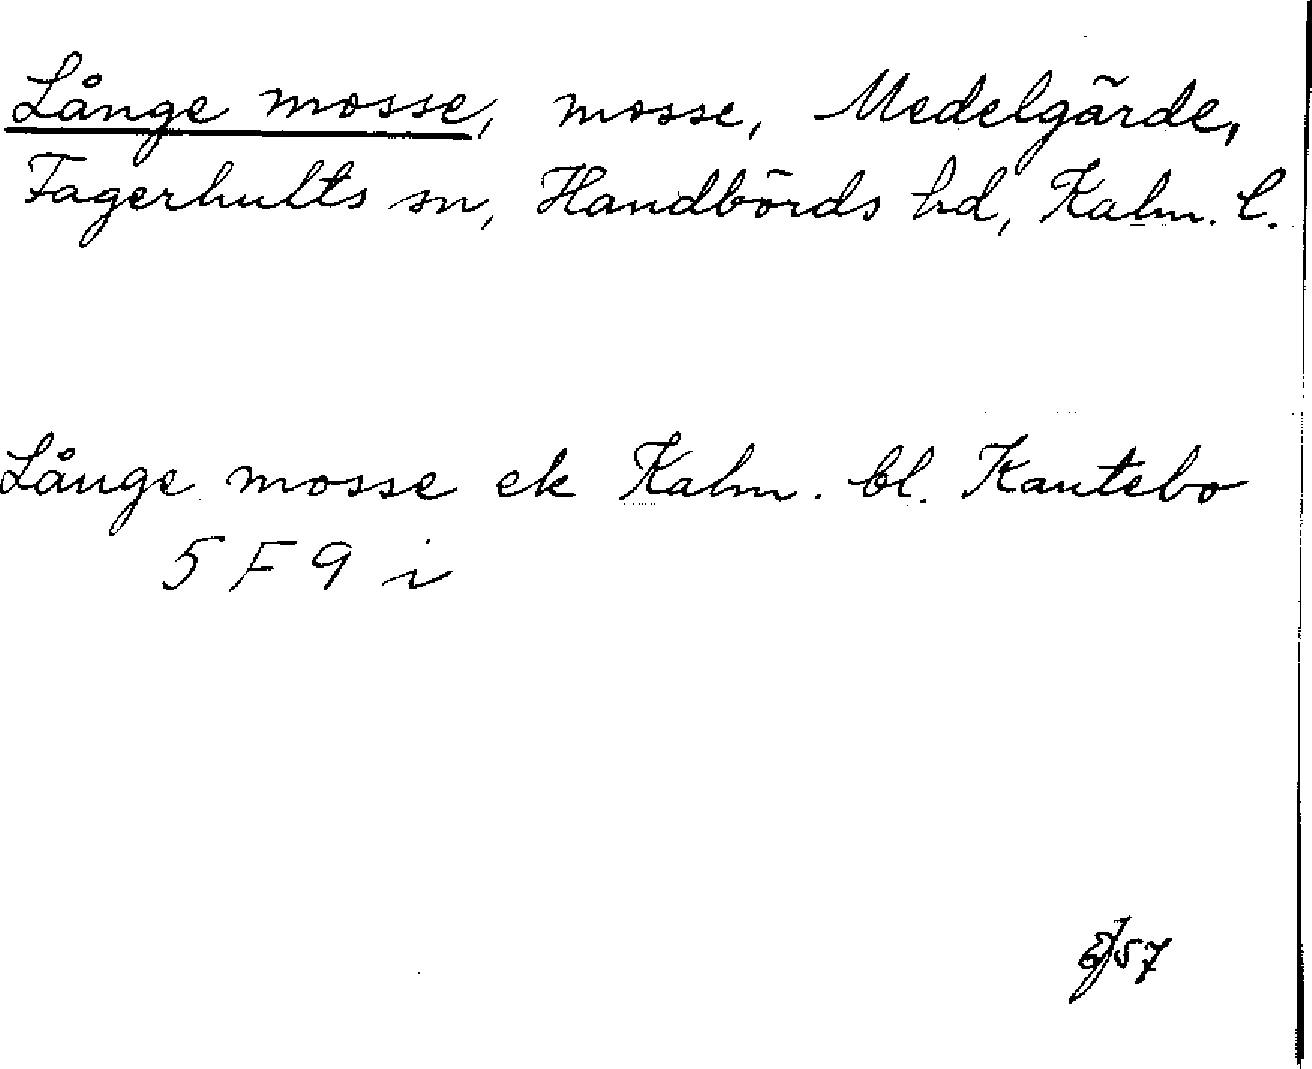 Långe mosse, mosse, Medelgärde,
Fagerhults sn, Handbörds hd, Kalm. l.
Långe mosse ek Kalm. bl. Kantebo
5 F 9 i
57